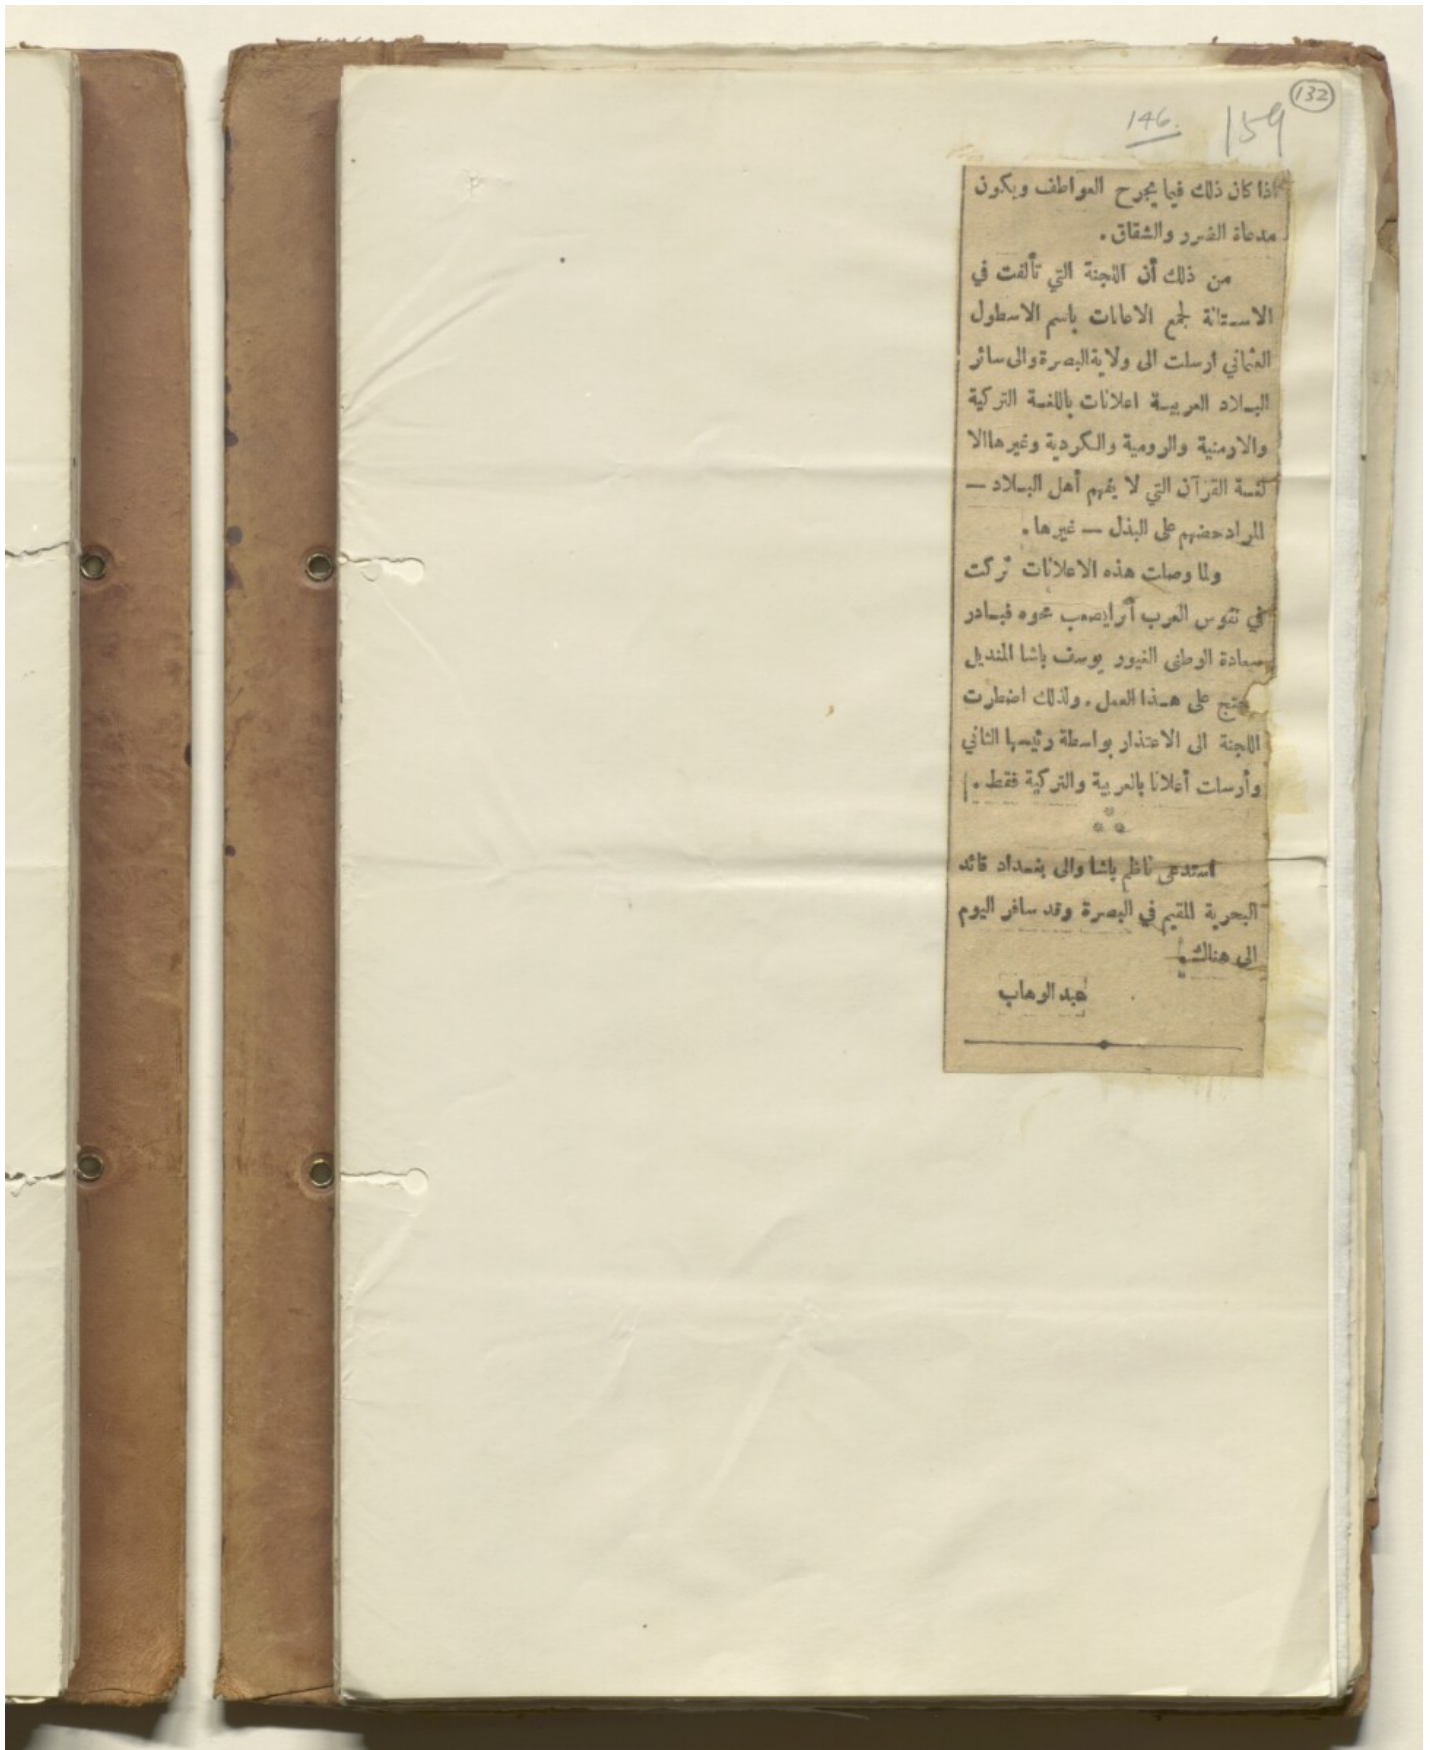 132
146.
159
اذا كان ذلك فيما يجرح العواطف ويكون
مدعاة الضرر والشقاق .
من ذلك أن اللجنة التي تألفت في
الاستانة لجمع الاعانات باسم الاسطول
العثماني ارسلت الى ولاية البصرة والى سائر
البلاد العربية اعلانات باللغة التركية
والارمنية والرومية والكردية وغيرها الا
لغة القرآن التي لا يفهم أهل البلاد —
المراد حضهم على البذل — غيرها .
ولما وصلت هذه الاعلانات تركت
في نفوس العرب أثرا يصعب محوه فبادر
سعادة الوطنى الغيور يوسف باشا المنديل
يحتج على هذا العمل . ولذلك اضطرت
اللجنة الى الاعتذار بواسطة رئيسها الثاني
وأرسلت أعلانا بالعربية والتركية فقط .
استدعى ناظم باشا والى بغداد قائد
البحرية المقيم في البصرة وقد سافر اليوم
الى هناك
عبد الوهاب